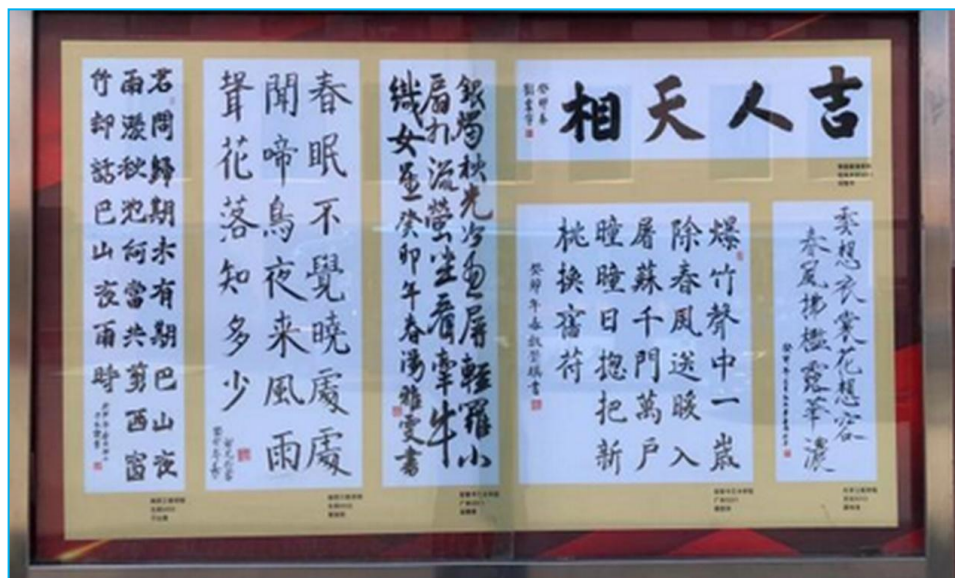 吉人天相
癸卯春
雲想衣裳花想容
春風拂檻露華濃
爆竹聲中一歲
除春風送暖入
屠蘇千門萬戶
曈曈日揔把新
桃換舊符
癸卯年書
銀燭秋光冷画屏輕羅小
扇扑流螢坐看牽牛
織女星癸卯年春湯雅雯書
春眠不覺曉處處
聞啼鳥夜来風雨
聲花落知多少
君問歸期未有期巴山夜
雨漲秋池何當共剪西窗
竹却話巴山夜雨時